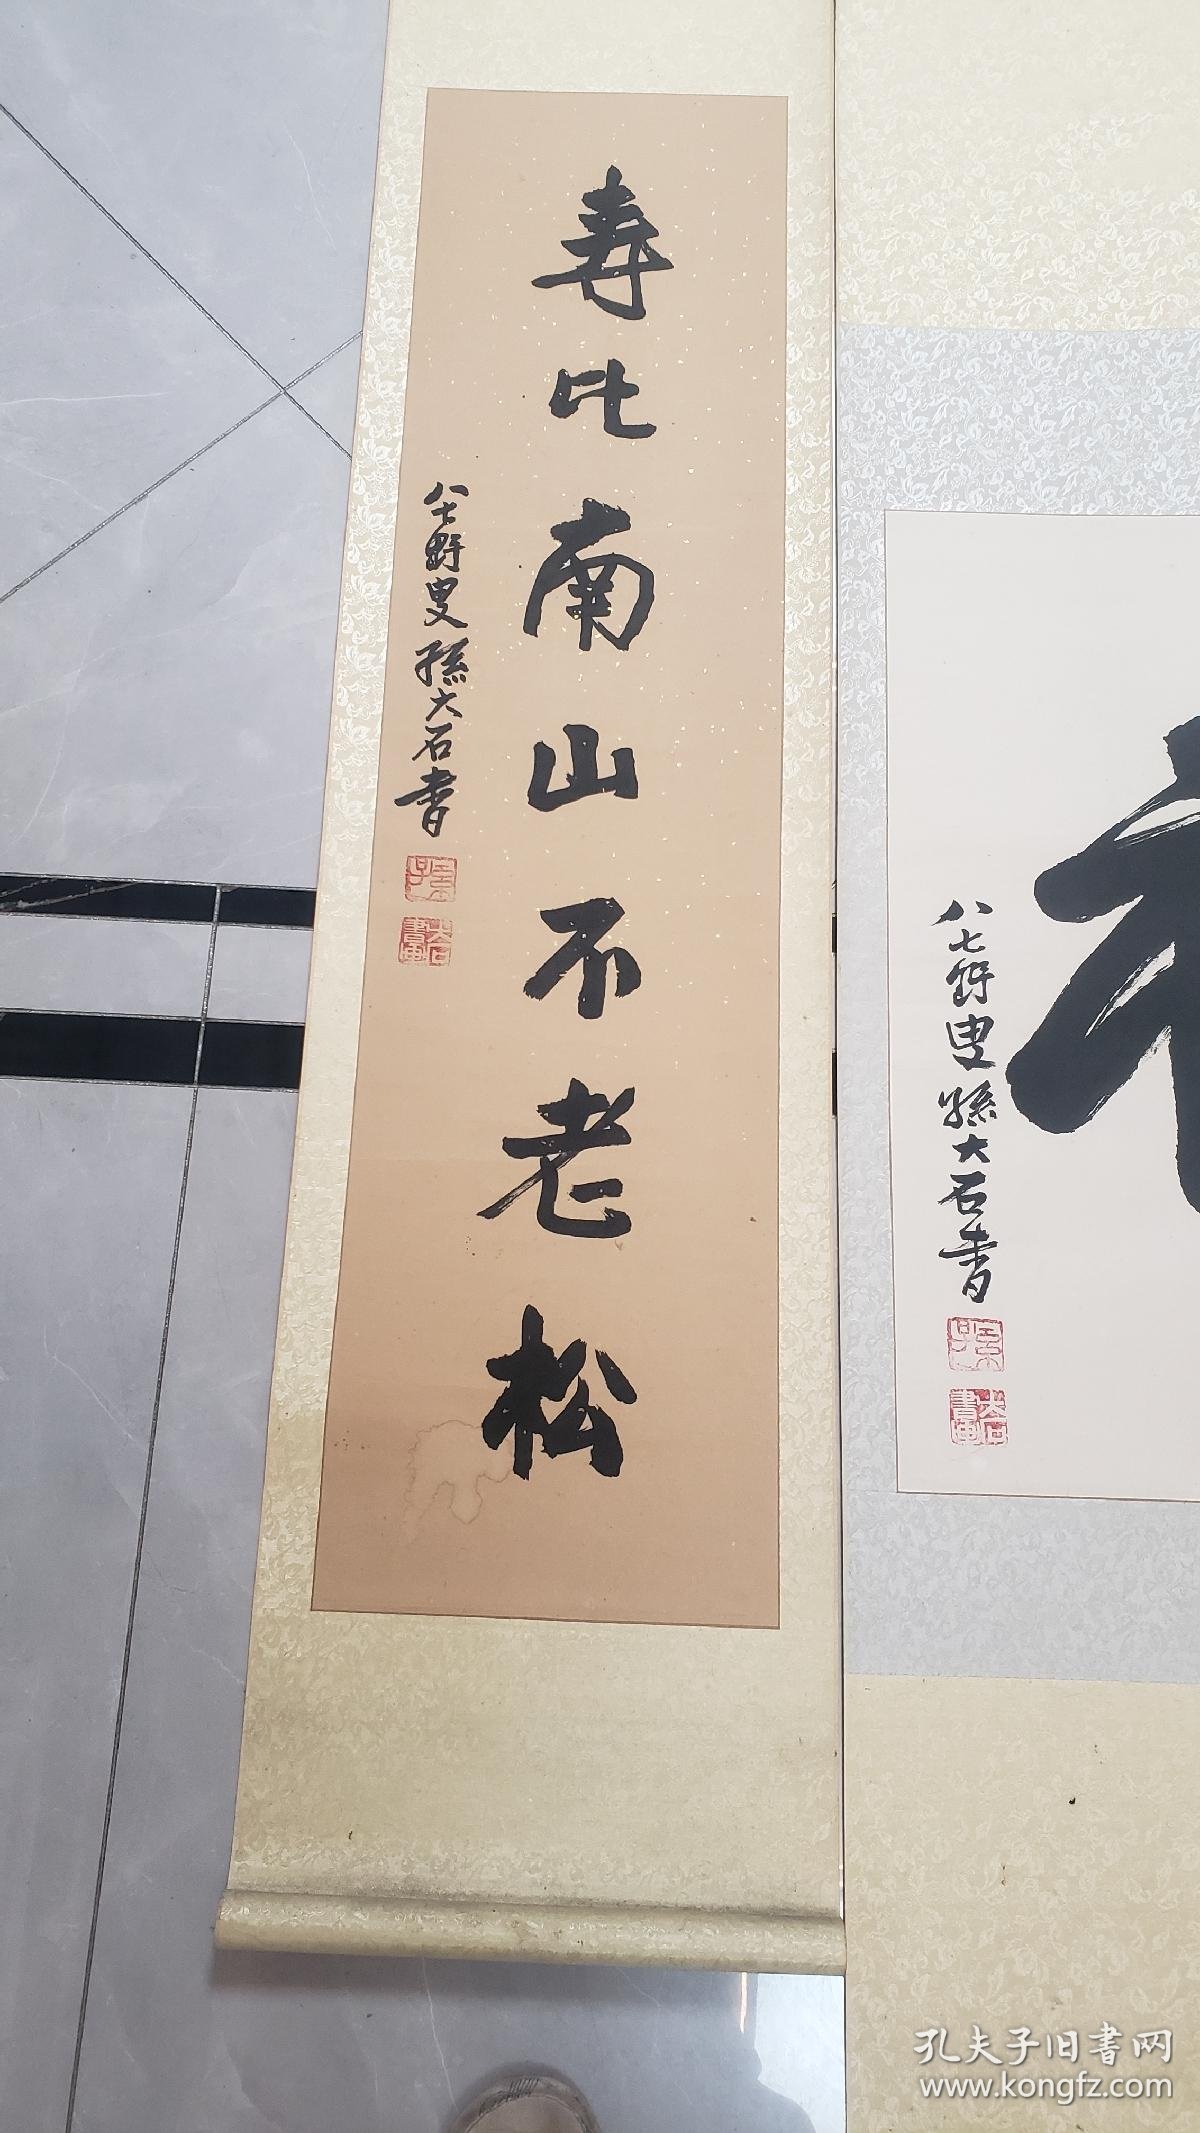 寿比南山不老松
八七野叟孫大石書
孫
大石書画
八七野叟孫大石書
孫
大石書画
孔夫子旧书网
www.kongfz.com